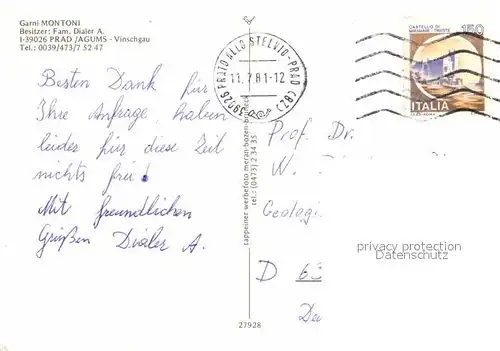 Garni MONTONI
Besitzer: Fam. Dialer A.
I-39026 PRAD /AGUMS - Vinschgau
Tel.: 0039/473/7 52 47
Besten Dank für
Ihre Anfrage, haben
leider für diese Zeit
nichts frei!
Mit freundlichen
Grüßen Dialer A.
39026 PRATO ALLO STELVIO - PRAD (BZ)
11.7.81-12
tappeiner werbefoto meran-bozen
tel. (0473) 2 34 35
27928
CASTELLO DI
MIRAMARE - TRIESTE
150
ITALIA
Prof. Dr.
W.
Geolog
D 63
privacy protection
Datenschutz